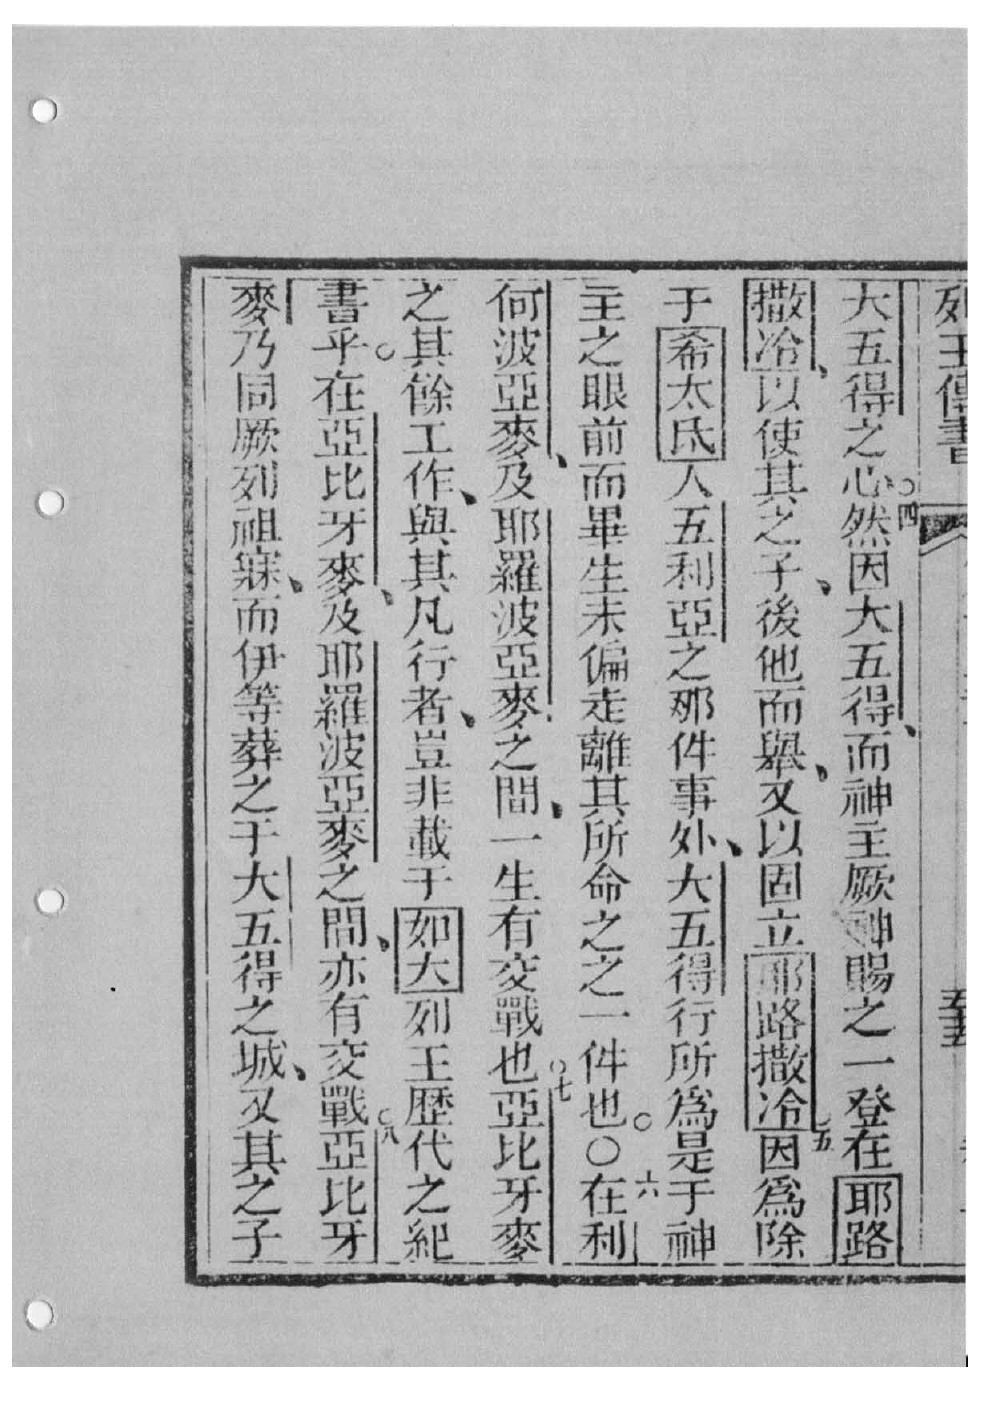 列王傳書
五
大五得之心、○四然因大五得、而神主厥神賜之一登在耶路
撒冷、以使其之子、後他而舉、又以固立耶路撒冷○五因爲除
于希太氐人五利亞之那件事外、大五得行所爲是于神
主之眼前而畢生未偏走離其所命之之一件也○〇六在利
何波亞麥、及耶羅波亞麥之間、一生有交戰也○七亞比牙麥
之其餘工作、與其凡行者、豈非載于如大列王歷代之紀
書乎○在亞比牙麥、及耶羅波亞麥之間、亦有交戰○八亞比牙
麥乃同厥列祖寐、而伊等葬之于大五得之城、又其之子